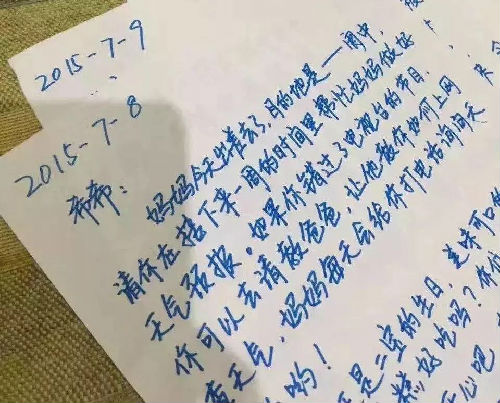 2015-7-9
2015-7-8
妈妈今天出差去了,目的地是——阆中,
请你在接下来一周的时间里帮忙妈妈做好
天气预报。如果你错过了电视台的节目,
你可以去请教爸爸,让他教你如何上网
查天气,妈妈每天会给你打电话询问天
哟!
是二宝的生日,美味可
糕好吃吗?你
心吧